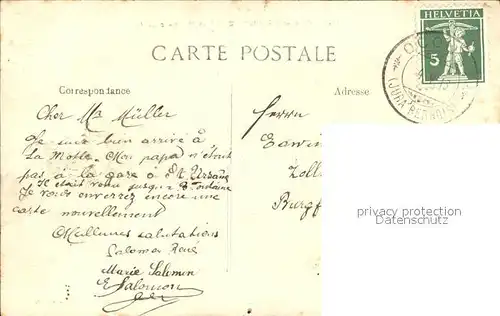 HELVETIA
5
CARTE POSTALE
Correspondance
Adresse
(JURA BERNOIS)
Cher Mr Müller
Je suis bien arrivé à
La Motte. Mon papa n'était
pas à la gare à St Ursanne
Il était venu jusqu'à
Je vous enverrez encore une
carte nouvellement
Meilleures salutations
Salomon René
Marie Salomon
E Salomon
Herrn
Edwin
Zoll
Burgf
privacy protection
watermark